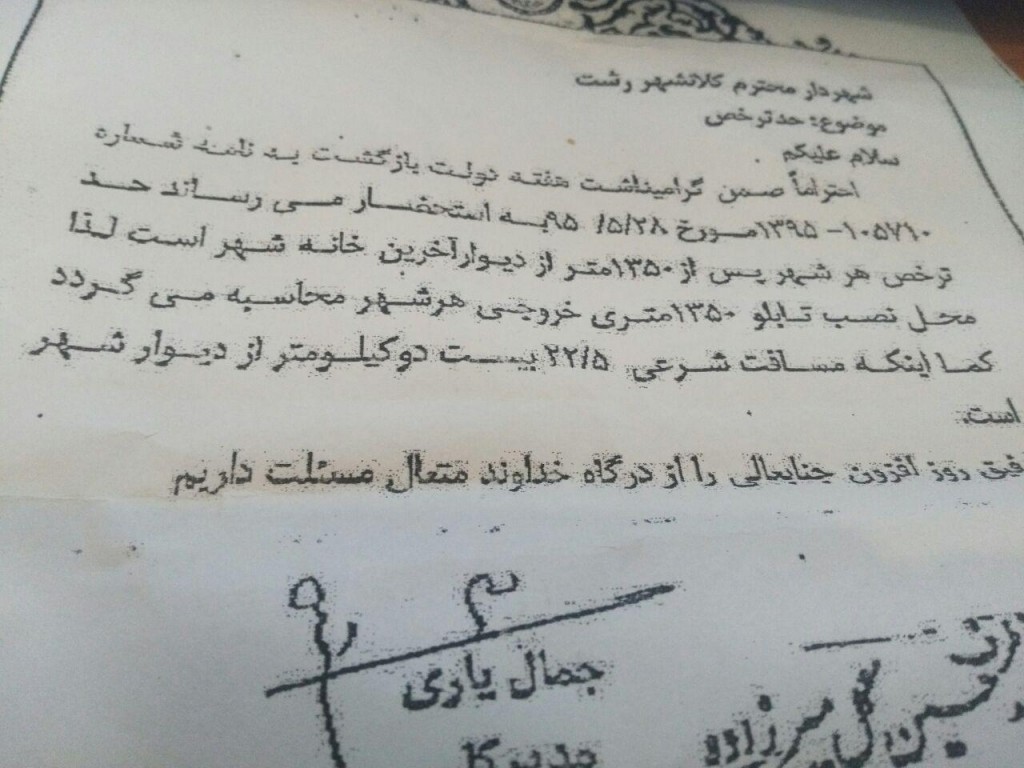 شهردار محترم کلانشهر رشت
موضوع: حدترخص
سلام علیکم
احتراماً ضمن گرامیداشت هفته دولت بازگشت به نامه شماره
۱۰۵۷۱۰-۱۳۹۵مورخ ۹۵/۵/۲۸به استحضار می رساند حد
ترخص هر شهر پس از ۱۳۵۰متر از دیوارآخرین خانه شهر است لذا
محل نصب تابلو ۱۳۵۰متری خروجی هرشهر محاسبه می گردد
کما اینکه مسافت شرعی ۲۲/۵ بیست دوکیلومتر از دیوار شهر
است.
فیق روز افزون جنابعالی را از درگاه خداوند متعال مسئلت داریم
جمال یاری
مدیرکل